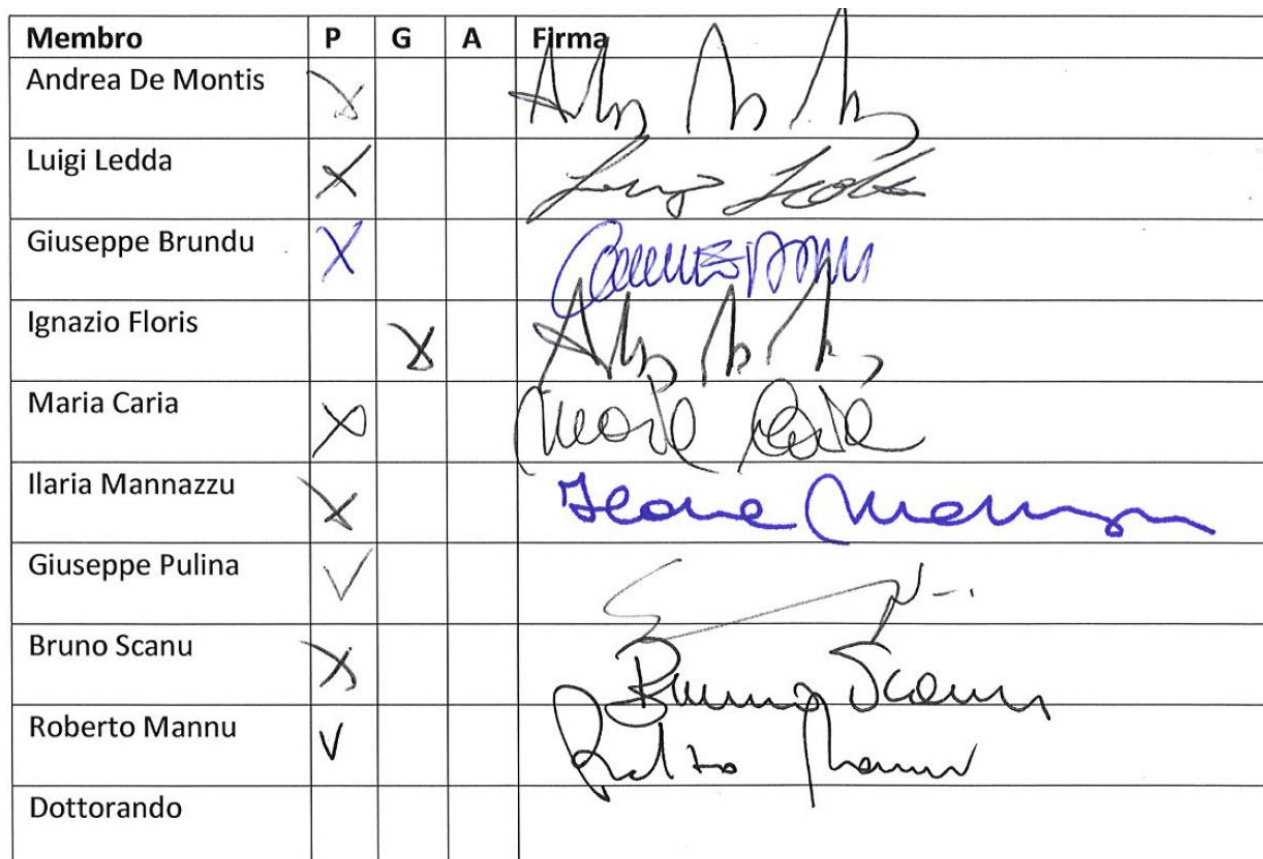 Membro P G A Firma
Andrea De Montis X
Luigi Ledda X Luigi Ledda
Giuseppe Brundu X
Ignazio Floris X
Maria Caria X Maria Caria
Ilaria Mannazzu X Ilaria Mannazzu
Giuseppe Pulina V
Bruno Scanu X Bruno Scanu
Roberto Mannu V Roberto Mannu
Dottorando